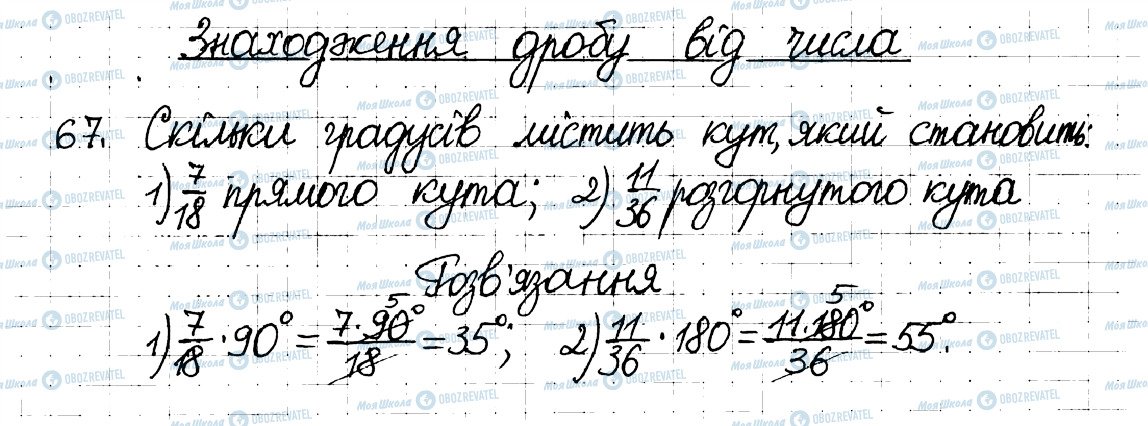 Знаходження дробу від числа
67. Скільки градусів містить кут, який становить:
1) 7/18 прямого кута; 2) 11/36 розгорнутого кута
Розв'язання
1) 7/18 · 90° = 7·90°/18 5 = 35°; 2) 11/36 · 180° = 11·180°/36 5 = 55°.